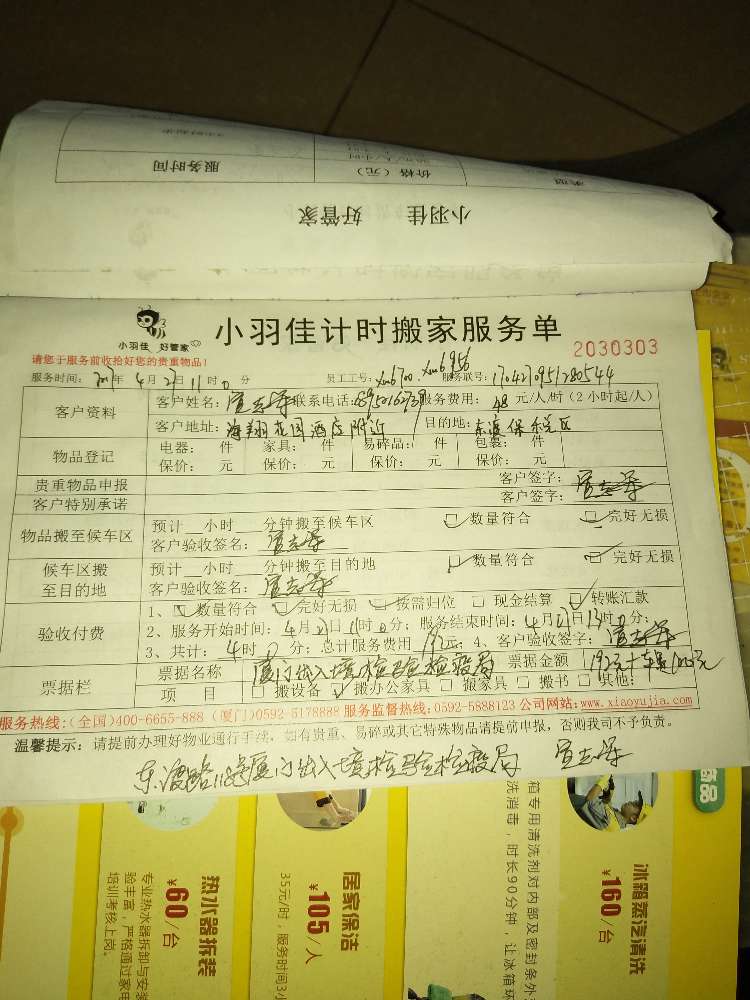 服务时间
价格（元）
小羽佳 好管家
小羽佳 好管家
小羽佳计时搬家服务单
2030303
请您于服务前收拾好您的贵重物品!
服务时间: 2017年 4月 27日 11时 0分 员工工号: xm6700. xm6956 服务联号: 1704270951280544
客户资料
客户姓名: 联系电话: 服务费用: 48 元/人/时(2小时起/人)
客户地址: 海翔花园酒店附近 目的地: 东渡保税区
物品登记
电器: 件 家具: 件 易碎品: 件 包裹: 件
保价: 元 保价: 元 保价: 元 保价: 元
贵重物品申报 客户签字:
客户特别承诺 客户签字:
物品搬至候车区
预计 小时 分钟搬至候车区 数量符合 完好无损
客户验收签名:
候车区搬至目的地
预计 小时 分钟搬至目的地 数量符合 完好无损
客户验收签名:
验收付费
1、 数量符合 完好无损 按需归位 现金结算 转账汇款
2、服务开始时间: 4月27日11时0分; 服务结束时间: 4月27日13时0分;
3、共计: 4时0分; 总计服务费用 192元; 4、客户验收签字:
票据栏
票据名称 厦门出入境检验检疫局 票据金额
项 目 搬设备 搬办公家具 搬家具 搬书 其他:
服务热线:(全国)400-6655-888 (厦门)0592-5178888 服务监督热线:0592-5888123 公司网站:www.xiaoyujia.com
温馨提示: 请提前办理好物业通行手续, 如有贵重、易碎或其它特殊物品请提前申报, 否则我司不予负责。
东渡路118号厦门出入境检验检疫局
热水器拆装
¥60/台
专业热水器拆卸与安装
验丰富，严格通过家电
培训考核上岗。
居家保洁
¥105/人
35元/时，服务时间3小
冰箱蒸汽清洗
¥160/台
箱专用清洗剂对内部及密封条外
洗消毒，时长90分钟，让冰箱环